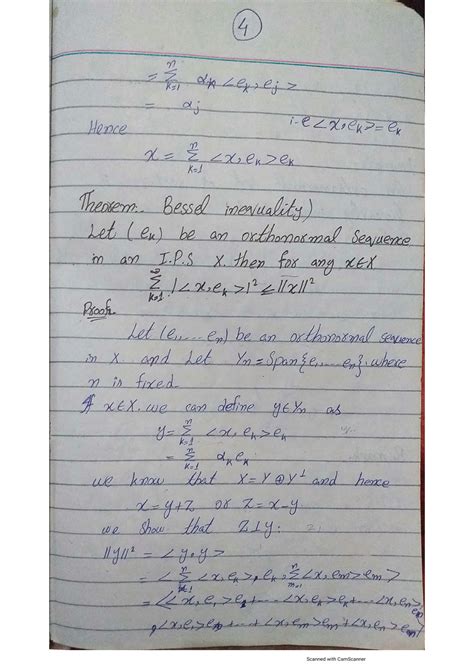 4
= Σ_{k=1}^{n} α_k <e_k, e_j>
= α_j
i-e <x, e_k> = e_k
Hence
x = Σ_{k=1}^{n} <x, e_k> e_k
Theorem:. Bessel inequality)
Let (e_k) be an orthonormal sequence
in an I.P.S X. then for any x∈X
Σ_{k=1}^{∞} |<x, e_k>|² ≤ ||x||²
Proof:
Let (e₁, .... e_n) be an orthonormal sequence
in X and Let Y_n = Span{e₁, .... e_n}. where
n is fixed.
If x∈X. we can define y∈Y_n as
y = Σ_{k=1}^{n} <x, e_k> e_k
= Σ_{k=1}^{n} α_k e_k
we know that X = Y ⊕ Y^⊥ and hence
x = y + z or z = x - y
we show that Z ⊥ y.
||y||² = <y, y>
= < Σ_{k=1}^{n} <x, e_k> e_k, Σ_{m=1}^{n} <x, e_m> e_m >
= < <x, e₁> e₁ + ... <x, e_k> e_k + ... <x, e_n> e_n
, <x, e₁> e₁ + ... <x, e_m> e_m + <x, e_n> e_n >
Scanned with CamScanner